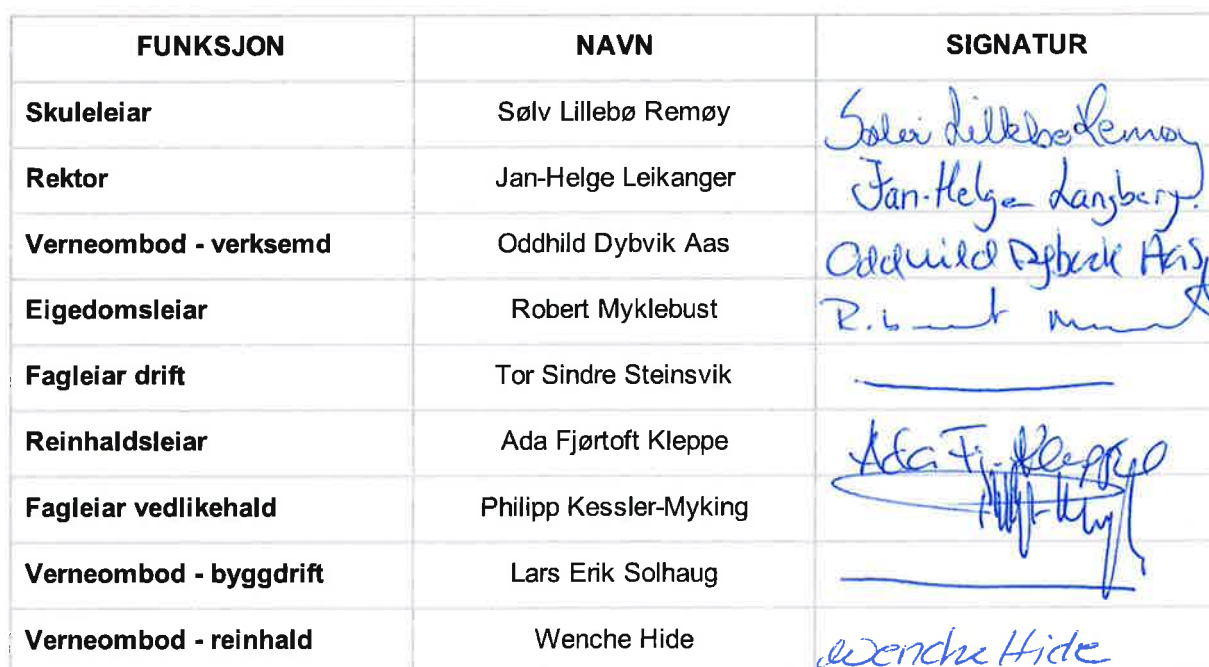 FUNKSJON NAVN SIGNATUR
Skuleleiar Sølv Lillebø Remøy Sølvi Lillebø Remøy
Rektor Jan-Helge Leikanger Jan-Helge Langberg.
Verneombod - verksemd Oddhild Dybvik Aas Oddhild Dybvik Aas
Eigedomsleiar Robert Myklebust
Fagleiar drift Tor Sindre Steinsvik
Reinhaldsleiar Ada Fjørtoft Kleppe Ada Fj. Kleppe
Fagleiar vedlikehald Philipp Kessler-Myking
Verneombod - byggdrift Lars Erik Solhaug
Verneombod - reinhald Wenche Hide Wenche Hide